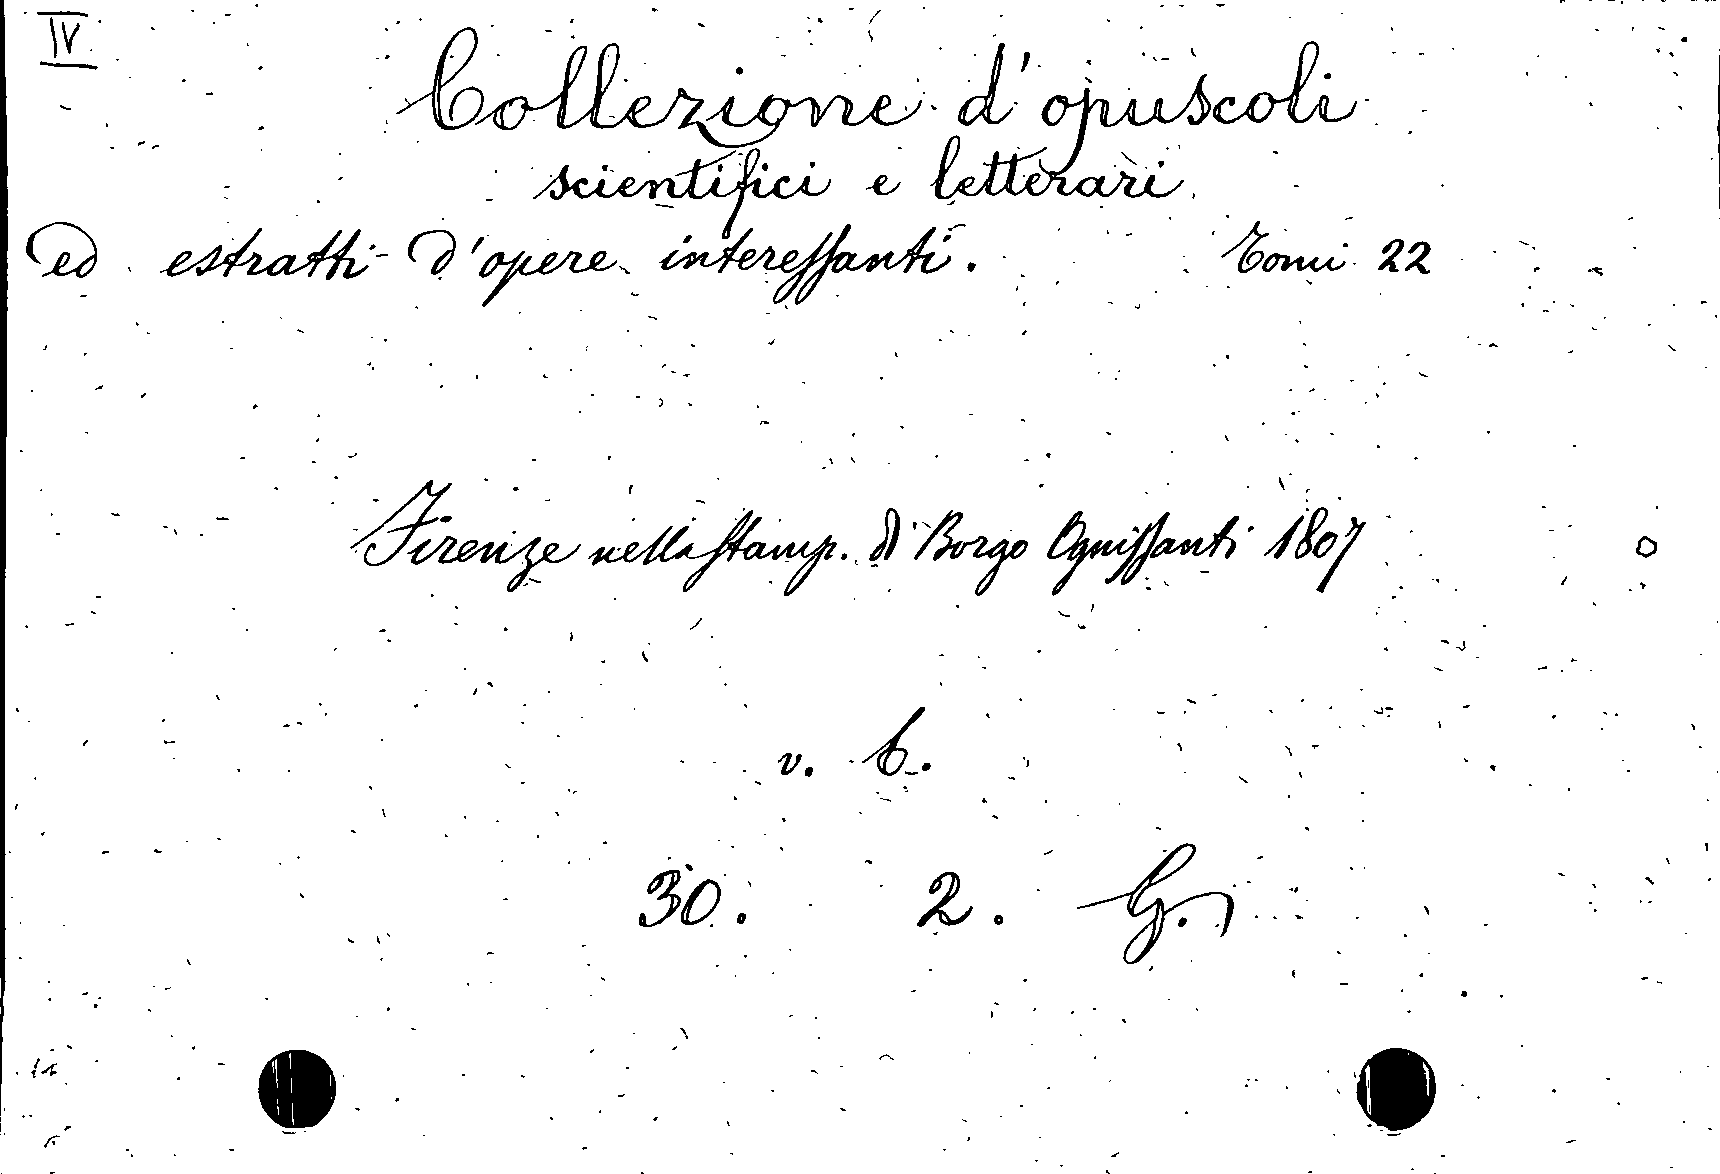 IV
Collezione d'opuscoli
scientifici e letterari
ed estratti d'opere interessanti. Tomi 22
Firenze nella stamp. di Borgo Ognissanti 1807
v. 6.
30. 2. G.